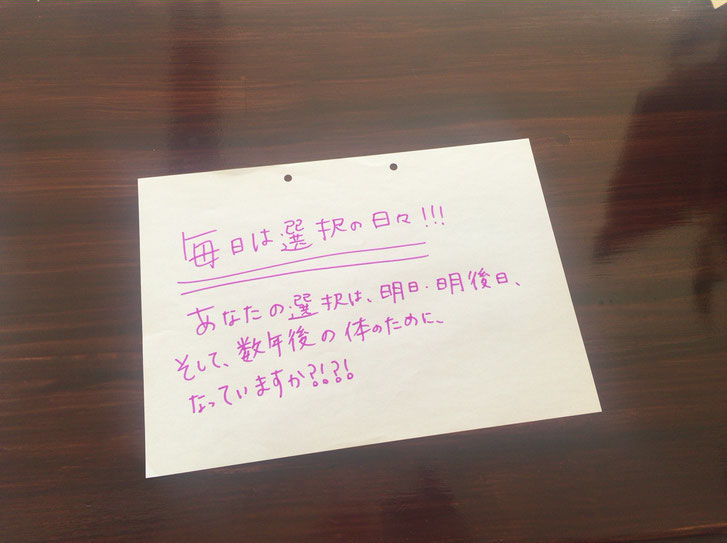 毎日は選択の日々!!!
あなたの選択は、明日・明後日、
そして、数年後の体のために、
なっていますか?!?!